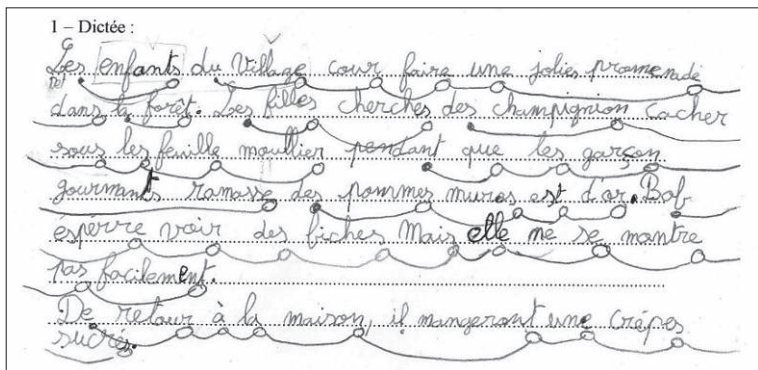 1 – Dictée :
Les enfants du village cour faire une jolies promenade
Det
dans la forêt. Les filles cherches des champignion cacher
sous les feuille moullier pendant que les garçon
gourmants ramasse des pommes mures est d'or. Bob
éspérre voir des biches Mais elle ne se montre
pas facilement.
De retour à la maison, il mangeront une crêpes
sucrés.